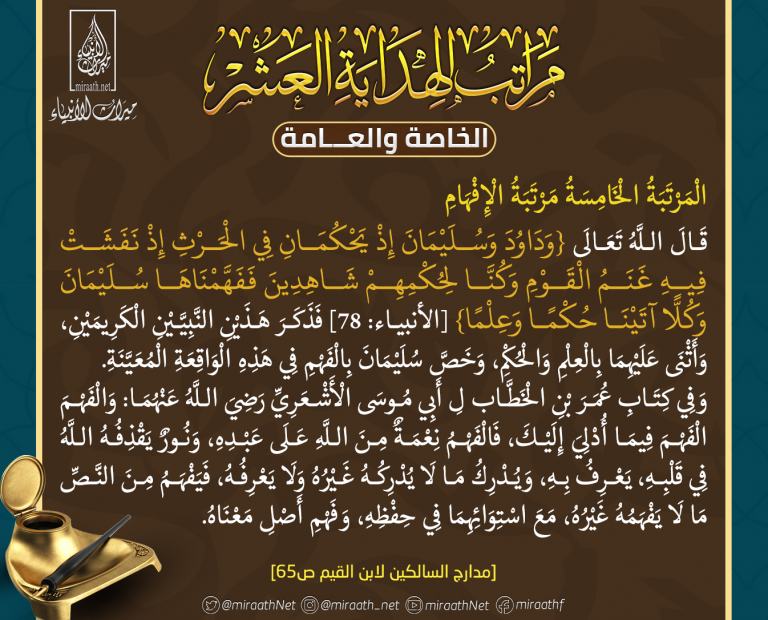 ميراث الأنبياء
miraath.net
ميراث الأنبياء
مَرَاتِبُ الهِدَايَةِ العَشْر
الخاصة والعـــامة
الْمَرْتَبَةُ الْخَامِسَةُ مَرْتَبَةُ الْإِفْهَامِ
قَالَ اللَّهُ تَعَالَى {وَدَاوُدَ وَسُلَيْمَانَ إِذْ يَحْكُمَانِ فِي الْحَرْثِ إِذْ نَفَشَتْ
فِيهِ غَنَمُ الْقَوْمِ وَكُنَّا لِحُكْمِهِمْ شَاهِدِينَ فَفَهَّمْنَاهَا سُلَيْمَانَ
وَكُلًّا آتَيْنَا حُكْمًا وَعِلْمًا} [الأنبياء: 78] فَذَكَرَ هَذَيْنِ النَّبِيَّيْنِ الْكَرِيمَيْنِ،
وَأَثْنَى عَلَيْهِمَا بِالْعِلْمِ وَالْحُكْمِ، وَخَصَّ سُلَيْمَانَ بِالْفَهْمِ فِي هَذِهِ الْوَاقِعَةِ الْمُعَيَّنَةِ.
وَفِي كِتَابِ عُمَرَ بْنِ الْخَطَّابِ لِ أَبِي مُوسَى الْأَشْعَرِيِّ رَضِيَ اللَّهُ عَنْهُمَا: وَالْفَهْمَ
الْفَهْمَ فِيمَا أُدْلِيَ إِلَيْكَ، فَالْفَهْمُ نِعْمَةٌ مِنَ اللَّهِ عَلَى عَبْدِهِ، وَنُورٌ يَقْذِفُهُ اللَّهُ
فِي قَلْبِهِ، يَعْرِفُ بِهِ، وَيُدْرِكُ مَا لَا يُدْرِكُهُ غَيْرُهُ وَلَا يَعْرِفُهُ، فَيَفْهَمُ مِنَ النَّصِّ
مَا لَا يَفْهَمُهُ غَيْرُهُ، مَعَ اسْتِوَائِهِمَا فِي حِفْظِهِ، وَفَهْمِ أَصْلِ مَعْنَاهُ.
[مدارج السالكين لابن القيم ص65]
@miraathNet @miraath_net miraathNet miraathf